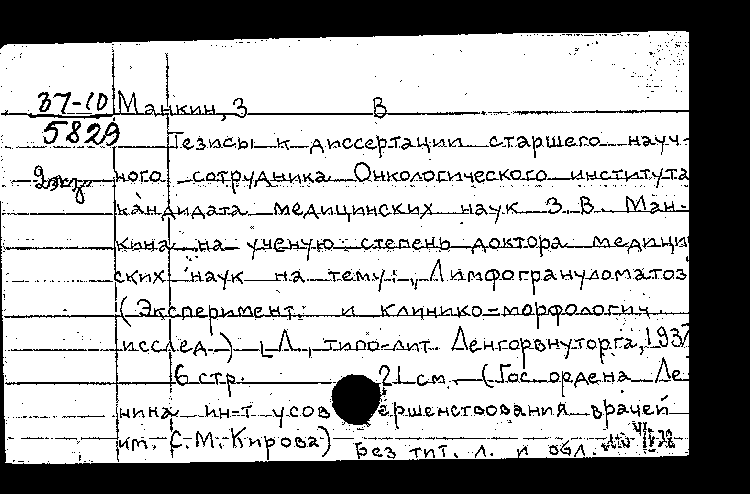 37-10 Манкин, З В
5829 Тезисы к диссертации старшего науч-
2экз ного сотрудника Онкологического института
кандидата медицинских наук З. В. Ман-
кина на ученую степень доктора медици
ских наук на тему: „Лимфогрануломатоз
(Эксперимент. и клинико-морфологич.
исслед.) [Л., типо-лит. Ленгорвнуторга, 1937
6 стр. 21 см. (Гос. ордена Ле-
нина ин-т усов ершенствования врачей
им. С. М. Кирова) Без тит. л. и обл.